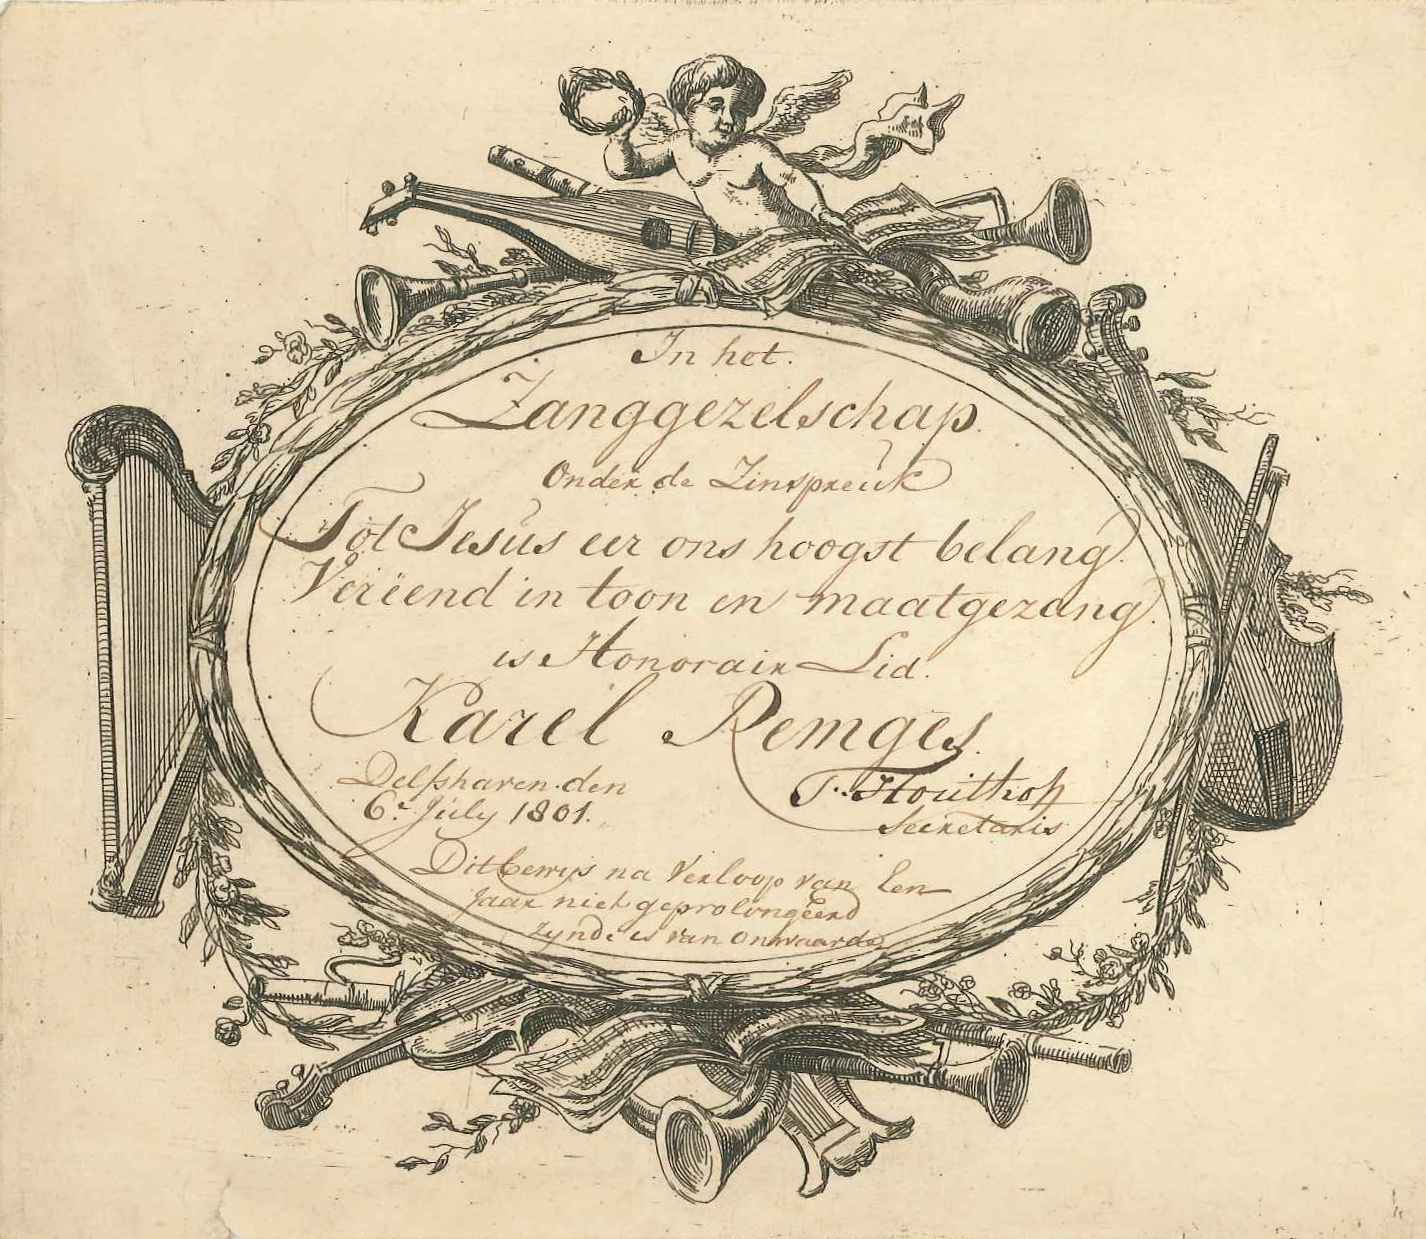 In het.
Zanggezelschap.
Onder de Zinspreuk
Tot Jesus eer ons hoogst belang.
Verëend in toon en maatgezang.
is Honorair Lid.
Karel Remges.
Delfshaven den
6e July 1801.
T. Houtthoff
Secretaris
Dit bewys na Verloop van Een
Jaar niet geprolongeerd
Zynde is van onwaarde